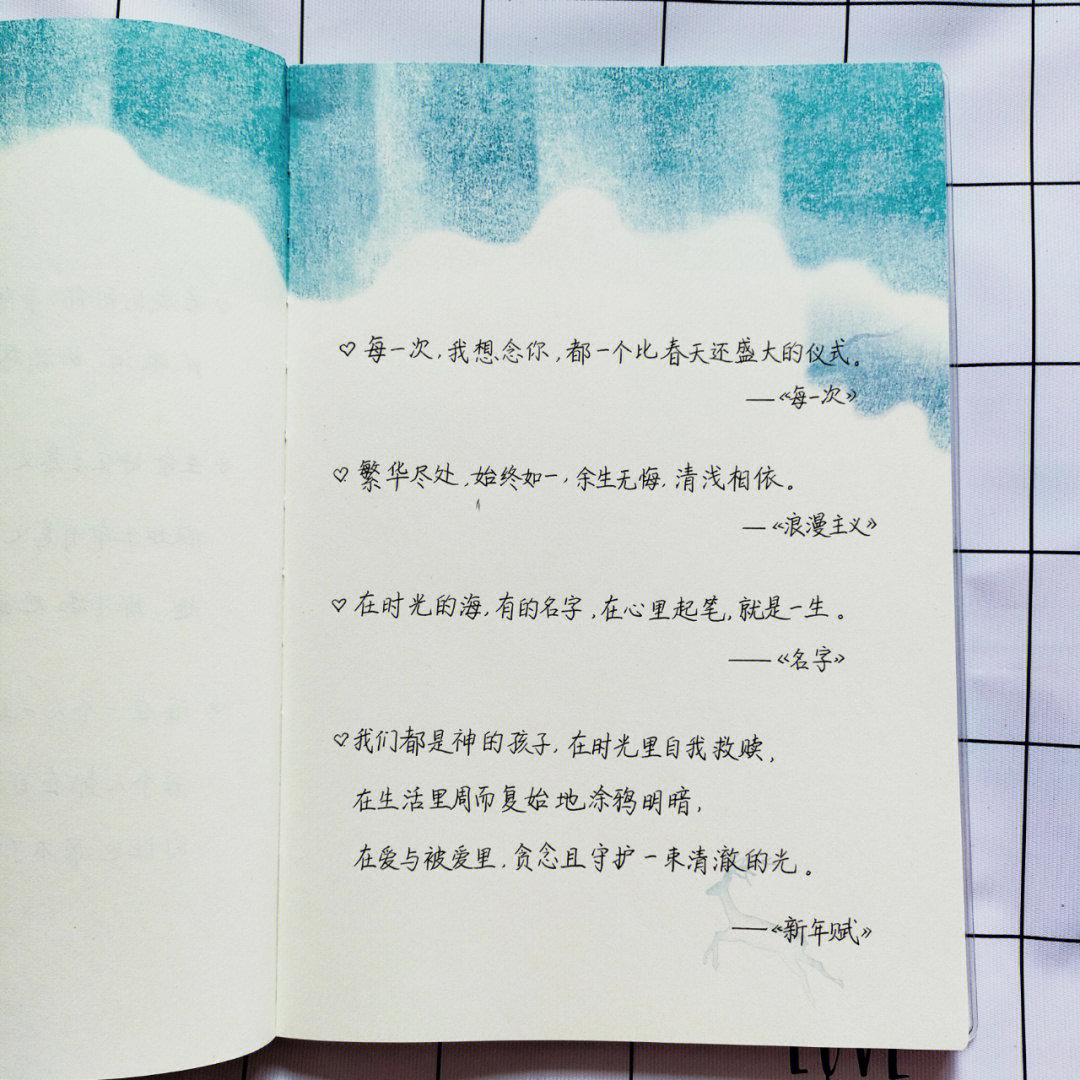 ♡每一次,我想念你,都一个比春天还盛大的仪式。
—《每一次》
♡繁华尽处,始终如一,余生无悔,清浅相依。
—《浪漫主义》
♡在时光的海,有的名字,在心里起笔,就是一生。
——《名字》
♡我们都是神的孩子,在时光里自我救赎,
在生活里周而复始地涂鸦明暗,
在爱与被爱里,贪念且守护一束清澈的光。
——《新年赋》
LOVE